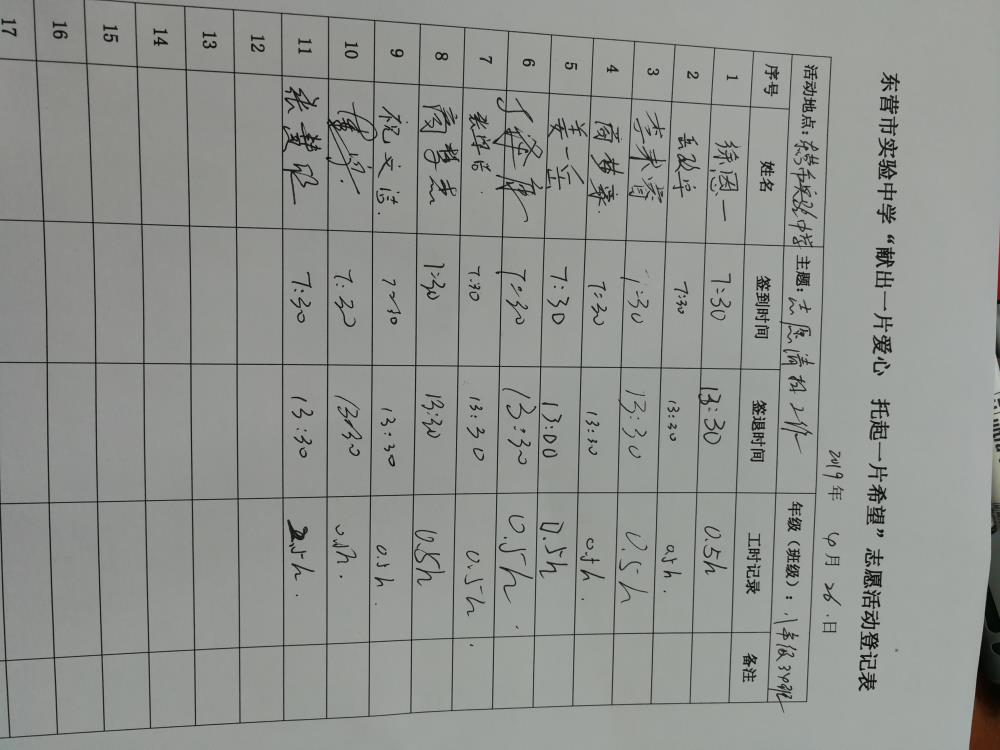 东营市实验中学“献出一片爱心 托起一片希望”志愿活动登记表
2019年 4月 26日
活动地点：东营市实验中学 主题：志愿清扫工作 年级（班级）：八年级34班
序号 姓名 签到时间 签退时间 工时记录 备注
1 徐恩一 7:30 13:30 0.5h
2 7:30 13:30 0.5h.
3 7:30 13:30 0.5h
4 周梦 7:30 13:30 0.5h.
5 姜一岳 7:30 13:00 0.5h
6 7:30 13:30 0.5h.
7 7.30 13:30 0.5h.
8 7:30 13:30 0.5h
9 祝文洁. 7:30 13:30 0.5h.
10 7:30 13:30 0.5h.
11 张 7:30 13:30 0.5h.
12
13
14
15
16
17